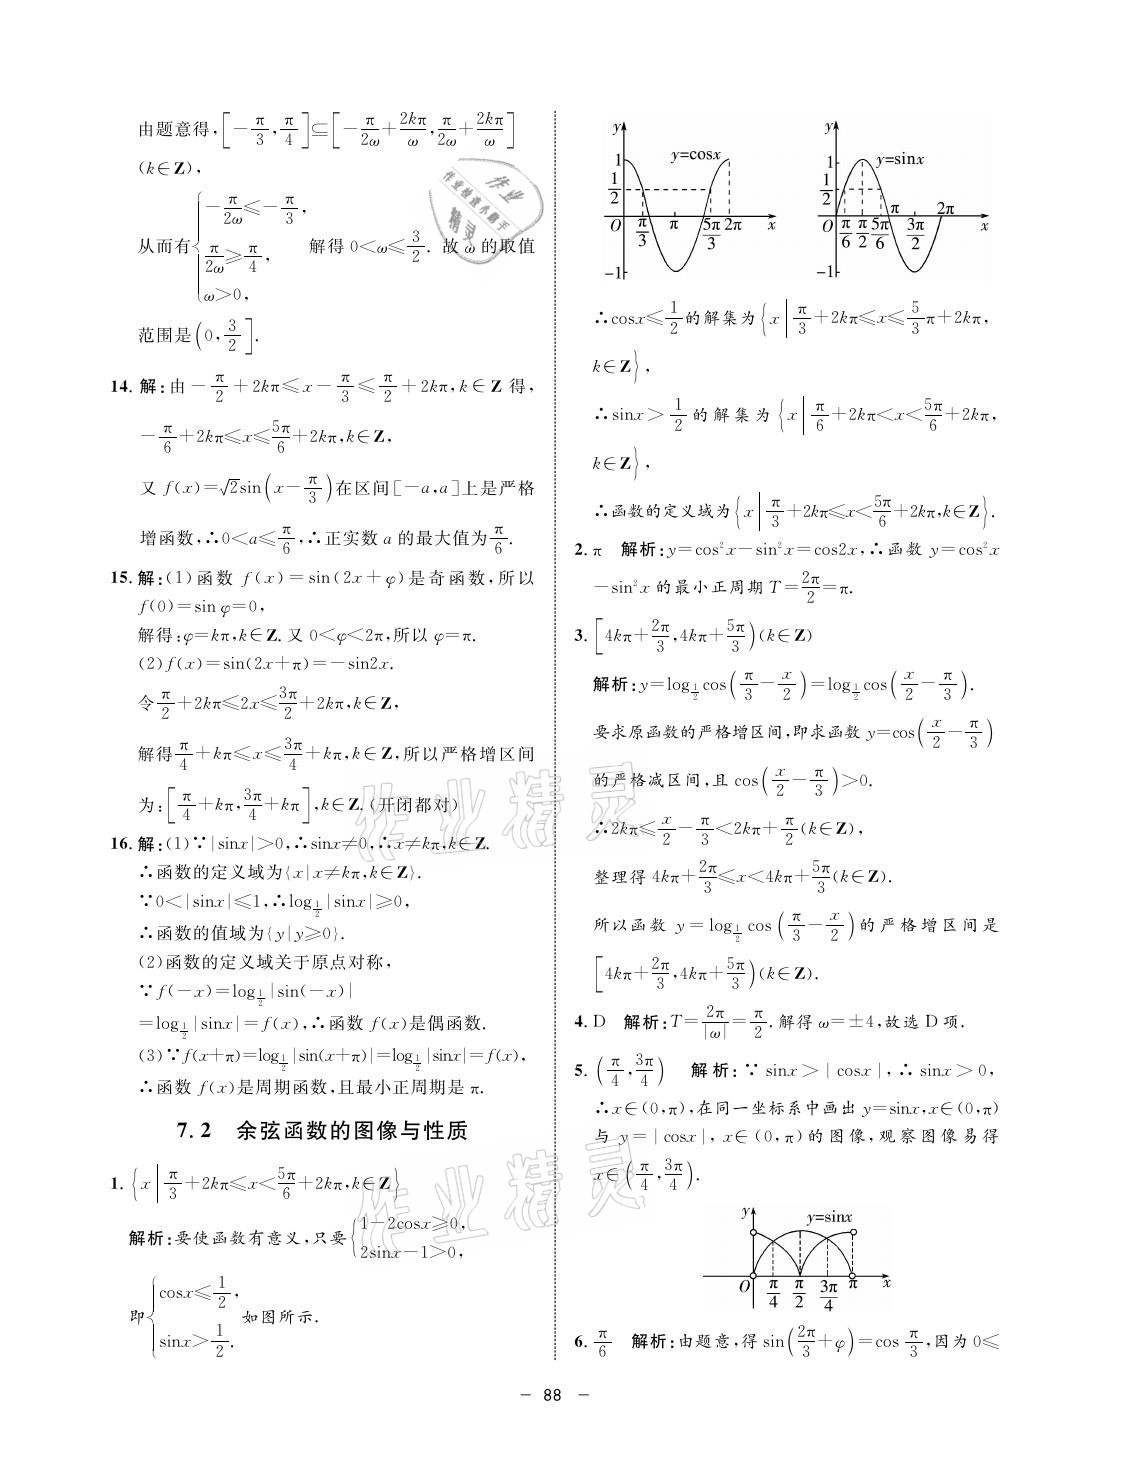 由题意得,[-π/3,π/4]⊆[-π/2ω+2kπ/ω,π/2ω+2kπ/ω]
(k∈Z),
从而有{-π/2ω≤-π/3, π/2ω≥π/4, ω>0, 解得 0<ω≤3/2. 故 ω 的取值
范围是(0,3/2].
14. 解:由-π/2+2kπ≤x-π/3≤π/2+2kπ,k∈Z 得,
-π/6+2kπ≤x≤5π/6+2kπ,k∈Z,
又 f(x)=√2sin(x-π/3)在区间[-a,a]上是严格
增函数,∴0<a≤π/6,∴正实数 a 的最大值为π/6.
15. 解:(1)函数 f(x)=sin(2x+φ)是奇函数,所以
f(0)=sin φ=0,
解得:φ=kπ,k∈Z. 又 0<φ<2π,所以 φ=π.
(2)f(x)=sin(2x+π)=-sin2x.
令π/2+2kπ≤2x≤3π/2+2kπ,k∈Z,
解得π/4+kπ≤x≤3π/4+kπ,k∈Z,所以严格增区间
为:[π/4+kπ,3π/4+kπ],k∈Z.(开闭都对)
16. 解:(1)∵|sinx|>0,∴sinx≠0,∴x≠kπ,k∈Z.
∴函数的定义域为{x|x≠kπ,k∈Z}.
∵0<|sinx|≤1,∴log_{1/2}|sinx|≥0,
∴函数的值域为{y|y≥0}.
(2)函数的定义域关于原点对称,
∵f(-x)=log_{1/2}|sin(-x)|
=log_{1/2}|sinx|=f(x),∴函数 f(x)是偶函数.
(3)∵f(x+π)=log_{1/2}|sin(x+π)|=log_{1/2}|sinx|=f(x),
∴函数 f(x)是周期函数,且最小正周期是 π.
7.2 余弦函数的图像与性质
1. {x|π/3+2kπ≤x<5π/6+2kπ,k∈Z}
解析:要使函数有意义,只要{1-2cosx≥0, 2sinx-1>0,
即{cosx≤1/2, sinx>1/2. 如图所示.
y 1 1/2 O -1 π/3 π 5π/3 2π x y=cosx
y 1 1/2 O -1 π/6 π/2 5π/6 π 3π/2 2π x y=sinx
∴cosx≤1/2的解集为{x|π/3+2kπ≤x≤5/3π+2kπ,
k∈Z},
∴sinx>1/2的解集为{x|π/6+2kπ<x<5π/6+2kπ,
k∈Z},
∴函数的定义域为{x|π/3+2kπ≤x<5π/6+2kπ,k∈Z}.
2. π 解析:y=cos²x-sin²x=cos2x,∴函数 y=cos²x
-sin²x 的最小正周期 T=2π/2=π.
3. [4kπ+2π/3,4kπ+5π/3)(k∈Z)
解析:y=log_{1/2}cos(π/3-x/2)=log_{1/2}cos(x/2-π/3).
要求原函数的严格增区间,即求函数 y=cos(x/2-π/3)
的严格减区间,且 cos(x/2-π/3)>0.
∴2kπ≤x/2-π/3<2kπ+π/2(k∈Z),
整理得 4kπ+2π/3≤x<4kπ+5π/3(k∈Z).
所以函数 y=log_{1/2}cos(π/3-x/2)的严格增区间是
[4kπ+2π/3,4kπ+5π/3)(k∈Z).
4. D 解析:T=2π/|ω|=π/2. 解得 ω=±4,故选 D 项.
5. (π/4,3π/4) 解析:∵sinx>|cosx|,∴sinx>0,
∴x∈(0,π),在同一坐标系中画出 y=sinx,x∈(0,π)
与 y=|cosx|,x∈(0,π)的图像,观察图像易得
x∈(π/4,3π/4).
y y=sinx O π/4 π/2 3π/4 π x
6. π/6 解析:由题意,得 sin(2π/3+φ)=cos π/3,因为 0≤
- 88 -
作业精灵
作业精灵
作业
作业检查小助手
精灵